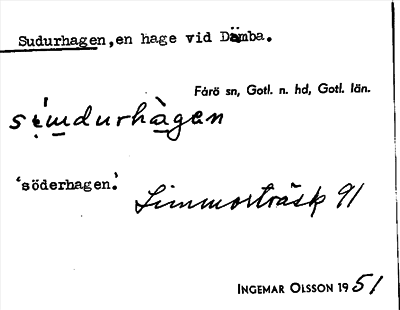 Sudurhagen, en hage vid Dämba.
Fårö sn, Gotl. n. hd, Gotl. län.
'söderhagen'.
Limmorträsk 91
INGEMAR OLSSON 1951